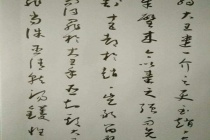 弱大王遣一介之使至趙
奉璧來今以秦之強而先
五都予趙趙豈敢留璧
而得罪於大王乎臣知欺大
罪當誅臣請就湯鑊惟